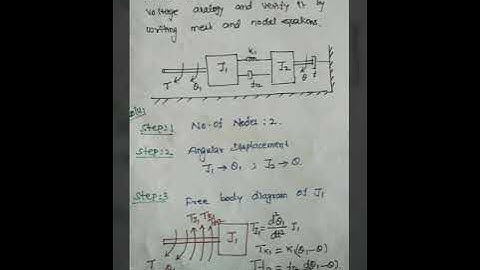 voltage analogy and verify it by
writing mesh and nodal equations.
K1
J1
J2
T
θ1
f12
θ
f
Step:1 No. of Nodes: 2.
Step:2 Angular Displacement
J1 → θ1 ; J2 → θ.
Step:3 Free body diagram of J1
TJ1 TK1 Tf12
J1
T
θ1
TJ1 = d²θ1/dt² J1
TK1 = K1(θ1-θ)
Tf12 = f12 d(θ1-θ)